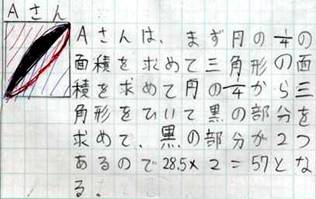 Aさん
Aさんは、まず円の1/4の
面積を求めて三角形の面
積を求めて円の1/4から三
角形をひいて黒の部分を
求めて、黒の部分が2つ
あるので28.5×2=57とな
る。